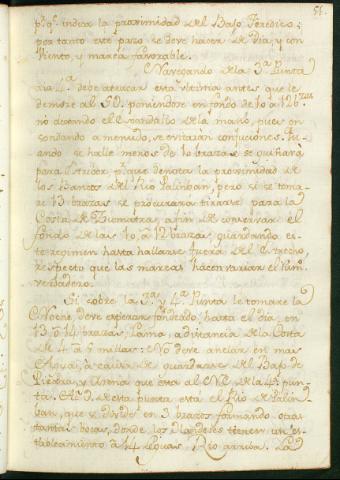 51.
pr. qe. indica la proximidad del Bajo Feredico;
por tanto este paso se deve hacer de dia, y con
Viento, y marea favorable.
Navegando de la 3ª. Punta
a la 4ª. debe atracar esta ultima antes que le
demore al SO. poniendose en fondo de 10 a 12 bras.
no dexando el Escandallo de la mano, pues son
sondando a menudo, se evitarán confuciones. Qu
ando se halle menos de 10 brazas se guiñará
para Estribor pr. que denota la proximidad de
los Bancos del Rio Palinban, pero si se toma-
re 13 brazas se procurará tirarse para la
Costa de Sumatra, a fin de conservar el
fondo de las 10, a 12 brazas, guardando es-
te regimen hasta hallarse fuera del Estrecho,
respecto que las mareas hacen variar el rum.
verdadero.
Si sobre la 3ª. y 4ª. Punta le tomare la
Noche, deve esperar fondeado hasta el dia, en
13 o 14 brazas, Lama, a distancia de la Costa
de 4 a 5 millas: No deve anclar en mas
Agua, a causa de guardarse del Bajo de
Piedras, y Arena que esta al NE de la 4ª. pun-
ta. Al O. de esta punta, está el Rio de Palin-
ban, que se divide en 3 brazos formando otras
tantas bocas, donde los Olandeses tienen un es-
tablecimiento a 14 Leguas Rio arriba. La